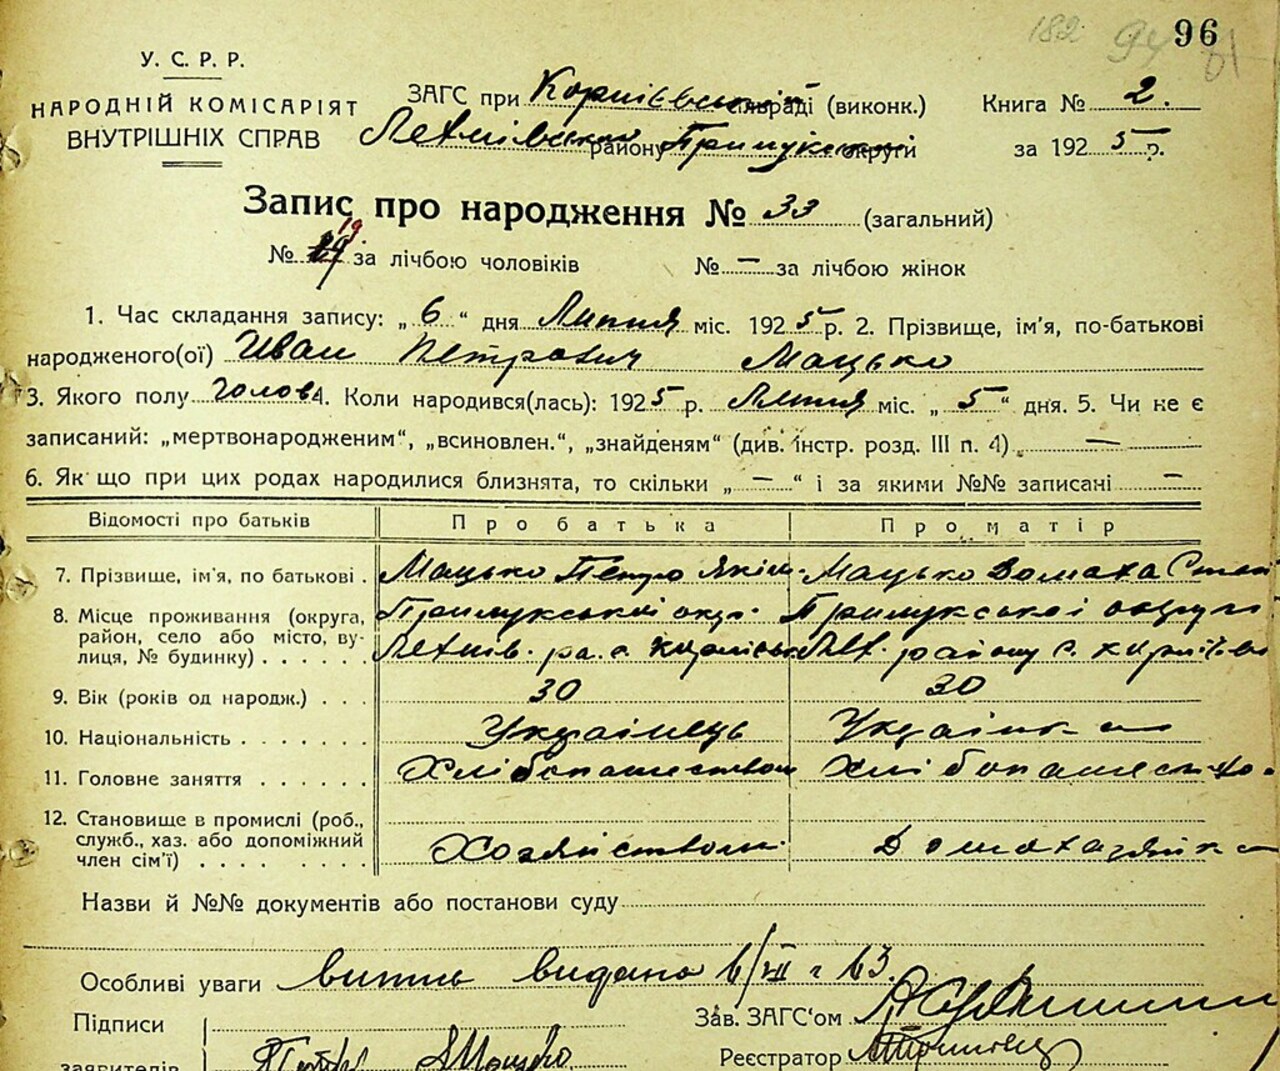 182 94 96
У. С. Р. Р.
НАРОДНІЙ КОМІСАРІЯТ
ВНУТРІШНІХ СПРАВ
ЗАГС при сільраді (виконк.)
району округи
Книга № 2.
за 1925 р.
Запис про народження № 33 (загальний)
№ 19 за лічбою чоловіків № — за лічбою жінок
1. Час складання запису: „6“ дня Липня міс. 1925 р. 2. Прізвище, ім'я, по-батькові
народженого(ої) Иван Петрович Мацько
3. Якого полу 4. Коли народився(лась): 1925 р. Липня міс. „5“ дня. 5. Чи не є
записаний: „мертвонародженим“, „всиновлен.“, „знайденям“ (див. інстр. розд. III п. 4) —
6. Як що при цих родах народилися близнята, то скільки „—“ і за якими №№ записані —
Відомості про батьків Про батька Про матір
7. Прізвище, ім'я, по батькові . Мацько Петро Яким- Мацько
8. Місце проживання (округа, Прилукської окр. Прилукської округи
район, село або місто, ву-
лиця, № будинку) . . . . . . району с.
9. Вік (років од народж.) . . . 30 30
10. Національність . . . . . . . Українець Українка
11. Головне заняття . . . . . . Хлібопашеством Хлібопашество.
12. Становище в промислі (роб.,
служб., хаз. або допоміжний
член сім'ї) . . . . . . . . Хозяйством Домохазяйка
Назви й №№ документів або постанови суду
Особливі уваги видано
Підписи Зав. ЗАГС'ом
заявителів Мацько Реєстратор